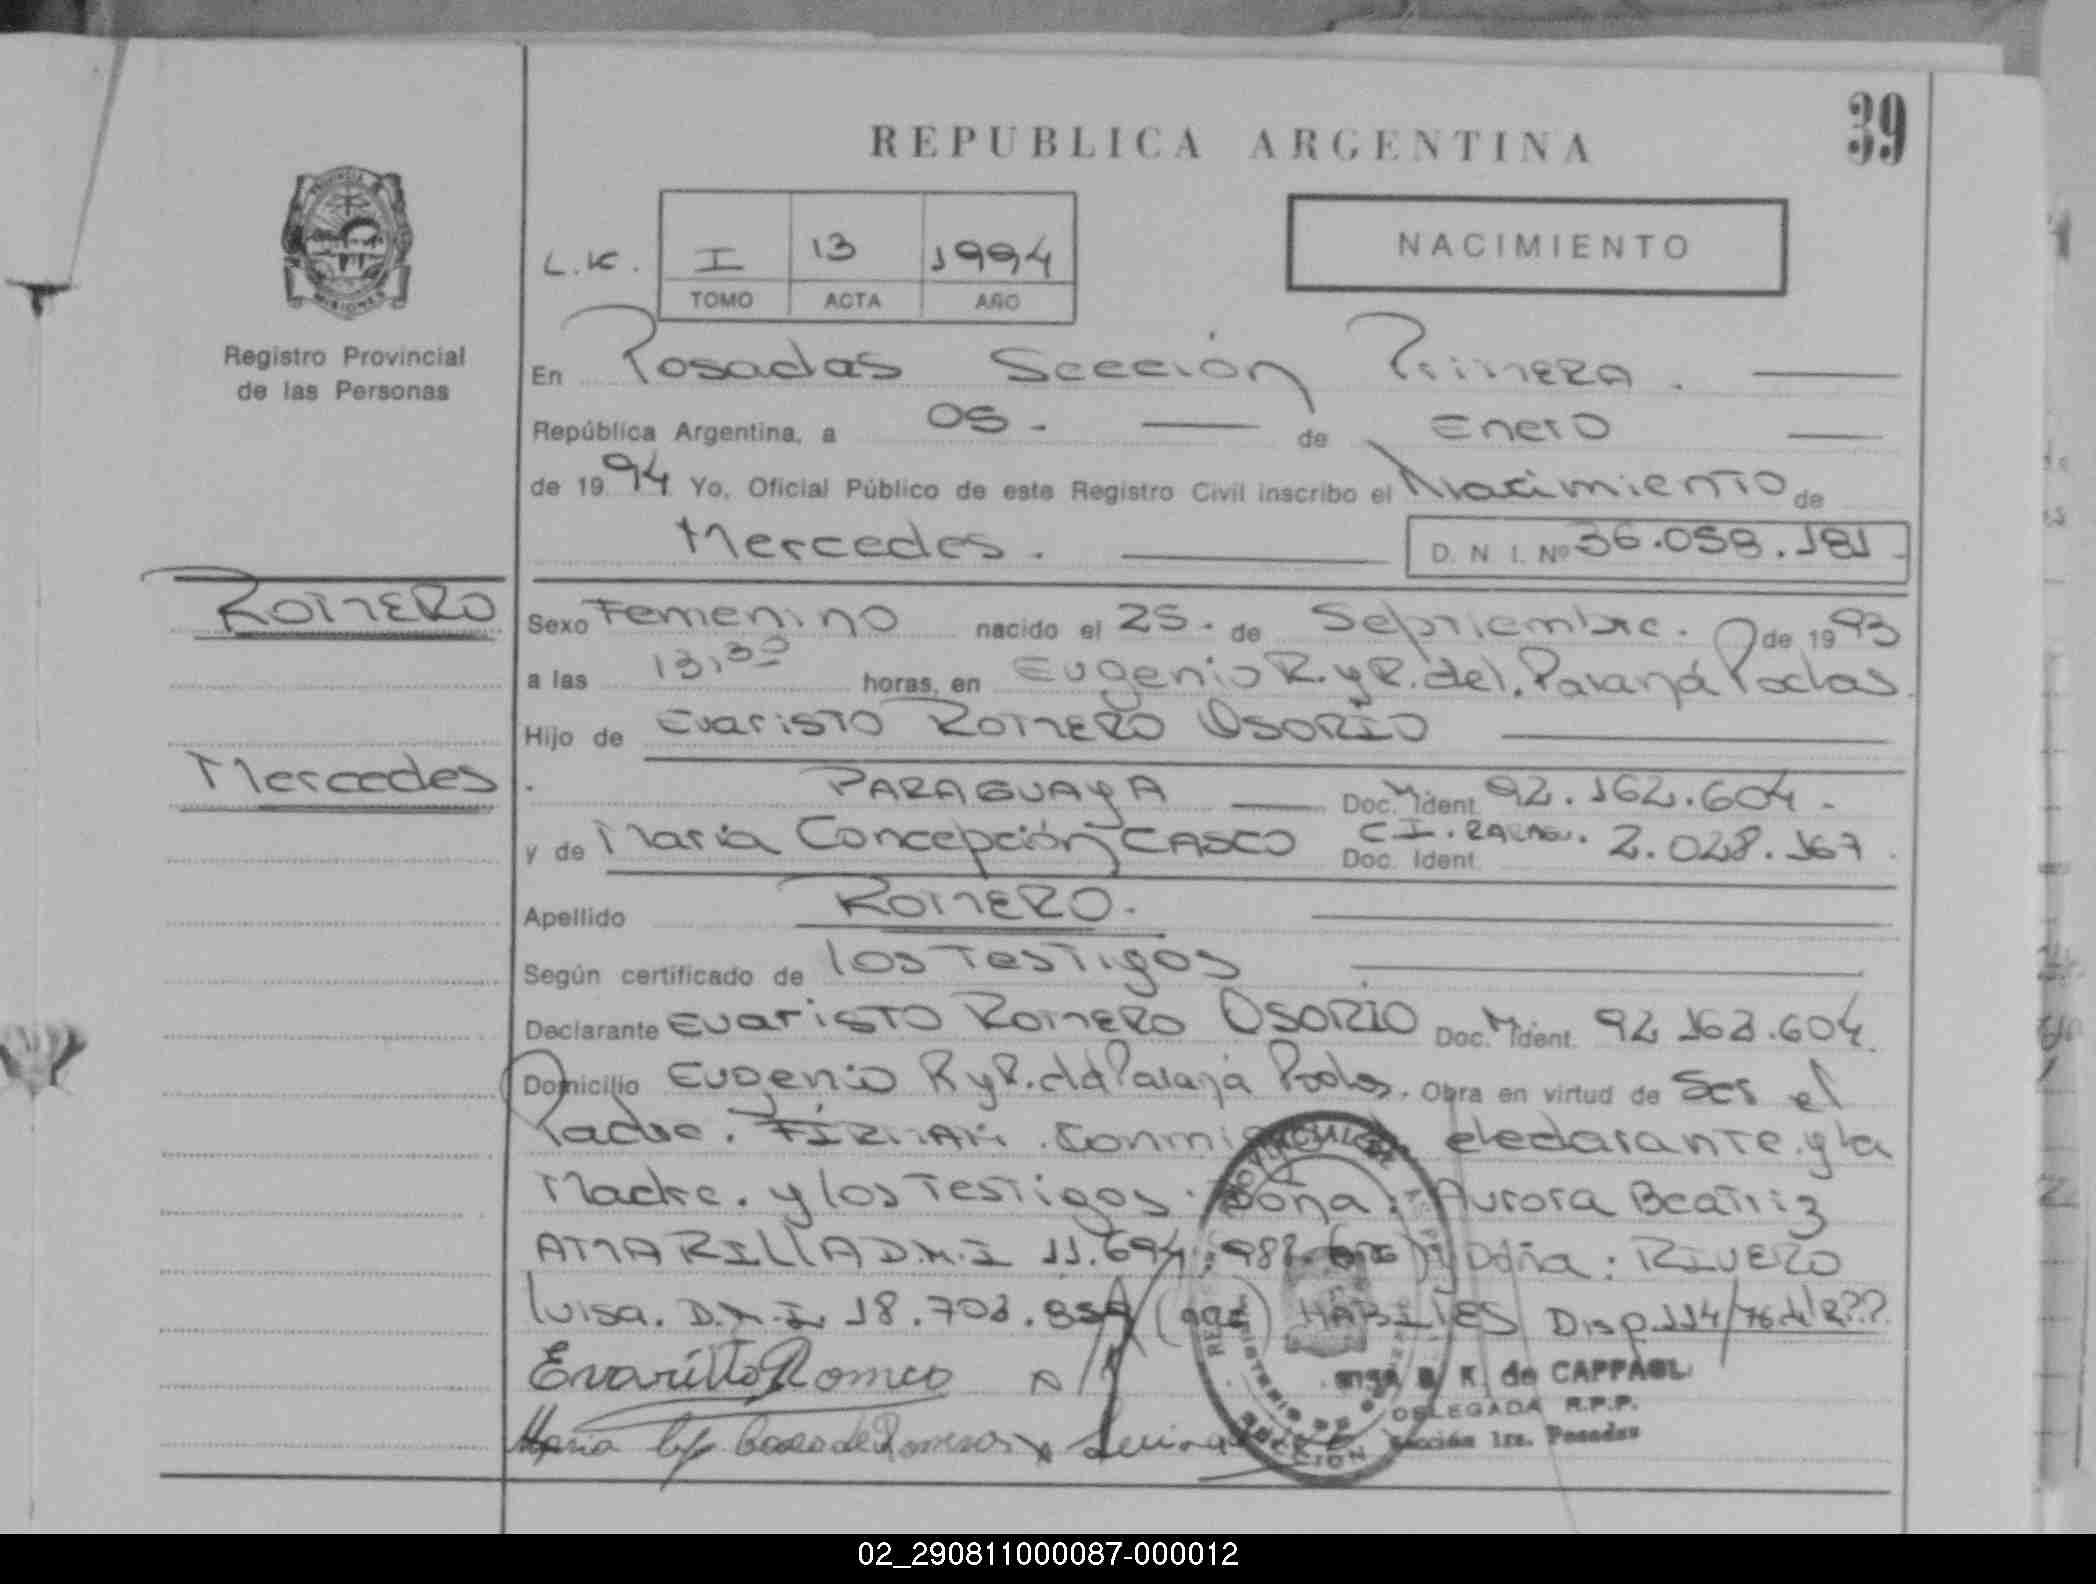 REPUBLICA ARGENTINA
39
NACIMIENTO
L.K. I 13 1994
TOMO ACTA AÑO
PROVINCIA
MISIONES
Registro Provincial
de las Personas
En Posadas Sección Primera.
República Argentina, a 05. de Enero
de 1994 Yo, Oficial Público de este Registro Civil inscribo el Nacimiento de
Mercedes. D. N. I. Nº 36.058.181
ROMERO
Sexo Femenino nacido el 25. de Septiembre. de 1993
a las 13,30 horas, en Eugenio R. y R. del. Paraná Podas
Hijo de Evaristo ROMERO OSORIO
Mercedes
PARAGUAYA Doc. Ident. 92.162.604.
y de María Concepción CASCO C.I. Doc. Ident. 2.028.167
Apellido ROMERO.
Según certificado de los Testigos
Declarante Evaristo ROMERO OSORIO Doc. Ident. 92 162.604
Domicilio Eugenio R y R. del Paraná Obra en virtud de Ser el
Padre. FIRMAN. declarante y la
Madre. y los Testigos. Doña: Aurora Beatriz
AMARILLA D.N.I 11.694. y Doña: RIVERO
luisa. D.N.I 18.703. HABILES Disp. 114/76
Evaristo Romero
Maria
de CAPPAGLI
DELEGADA R.P.P.
Sección 1ra. Posadas
02_290811000087-000012